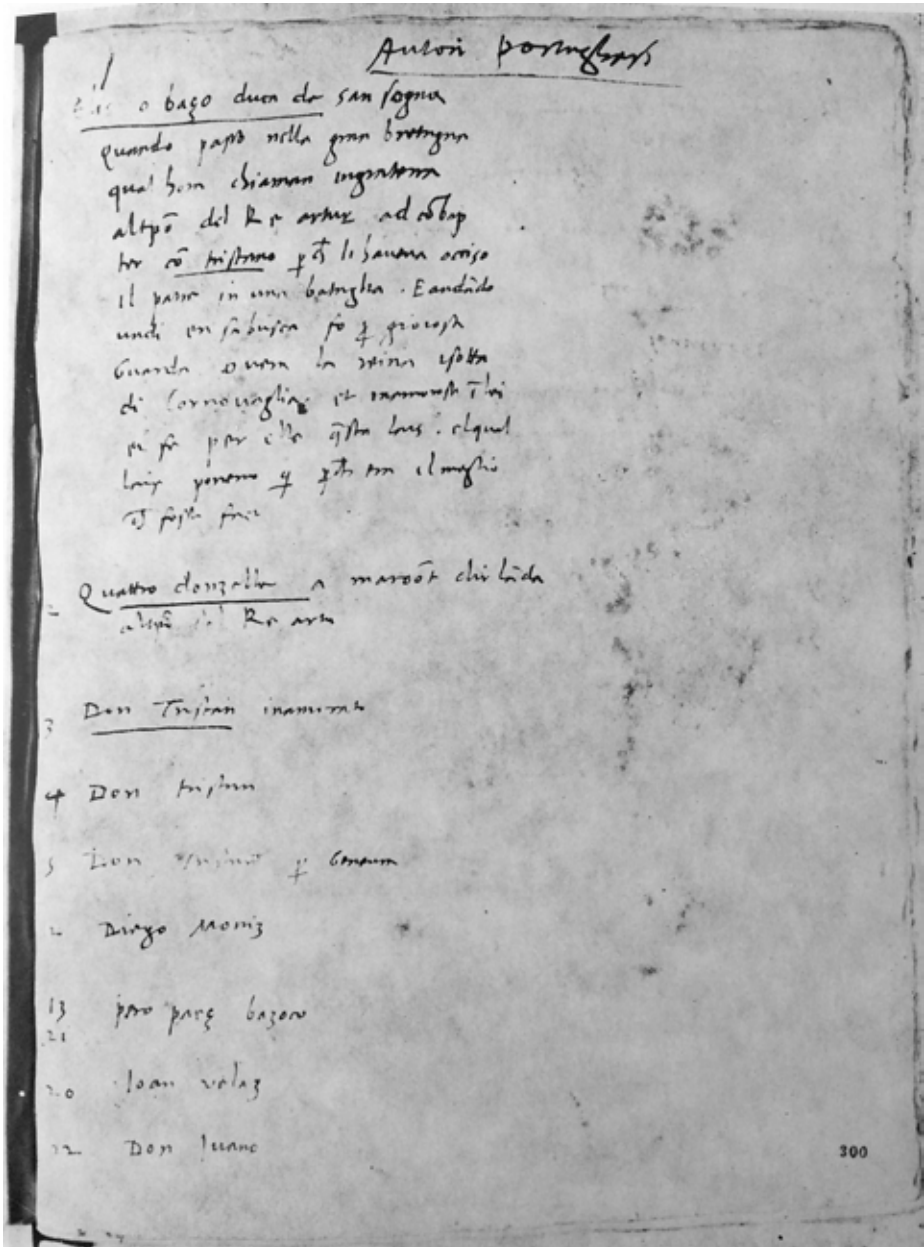 Autori Portughesi
1
Elis o bazo duca de sansogna
quando passò nella gran bretagna
qual hora chiaman ingraterra
altpõ del Re artur ad cõbap
ter cõ tristano li haveva occiso
il padre in una battaglia. E andãdo
un dì en sa busca fo giososa
Guarda overa la reina isotta
di Cornovaglia et
ei fe per elle lais. elqual
lais poremo era il meglio
fosse fatto
2 Quattro donzelle a maroõt dirlãda
altpõ del Re artu
3 Don Tristan inamorato
4 Don tristan
5 Don Genevra
Diego Moniz
13 pero paez bazoco
21
20 Joan velaz
22 Don Juano
300